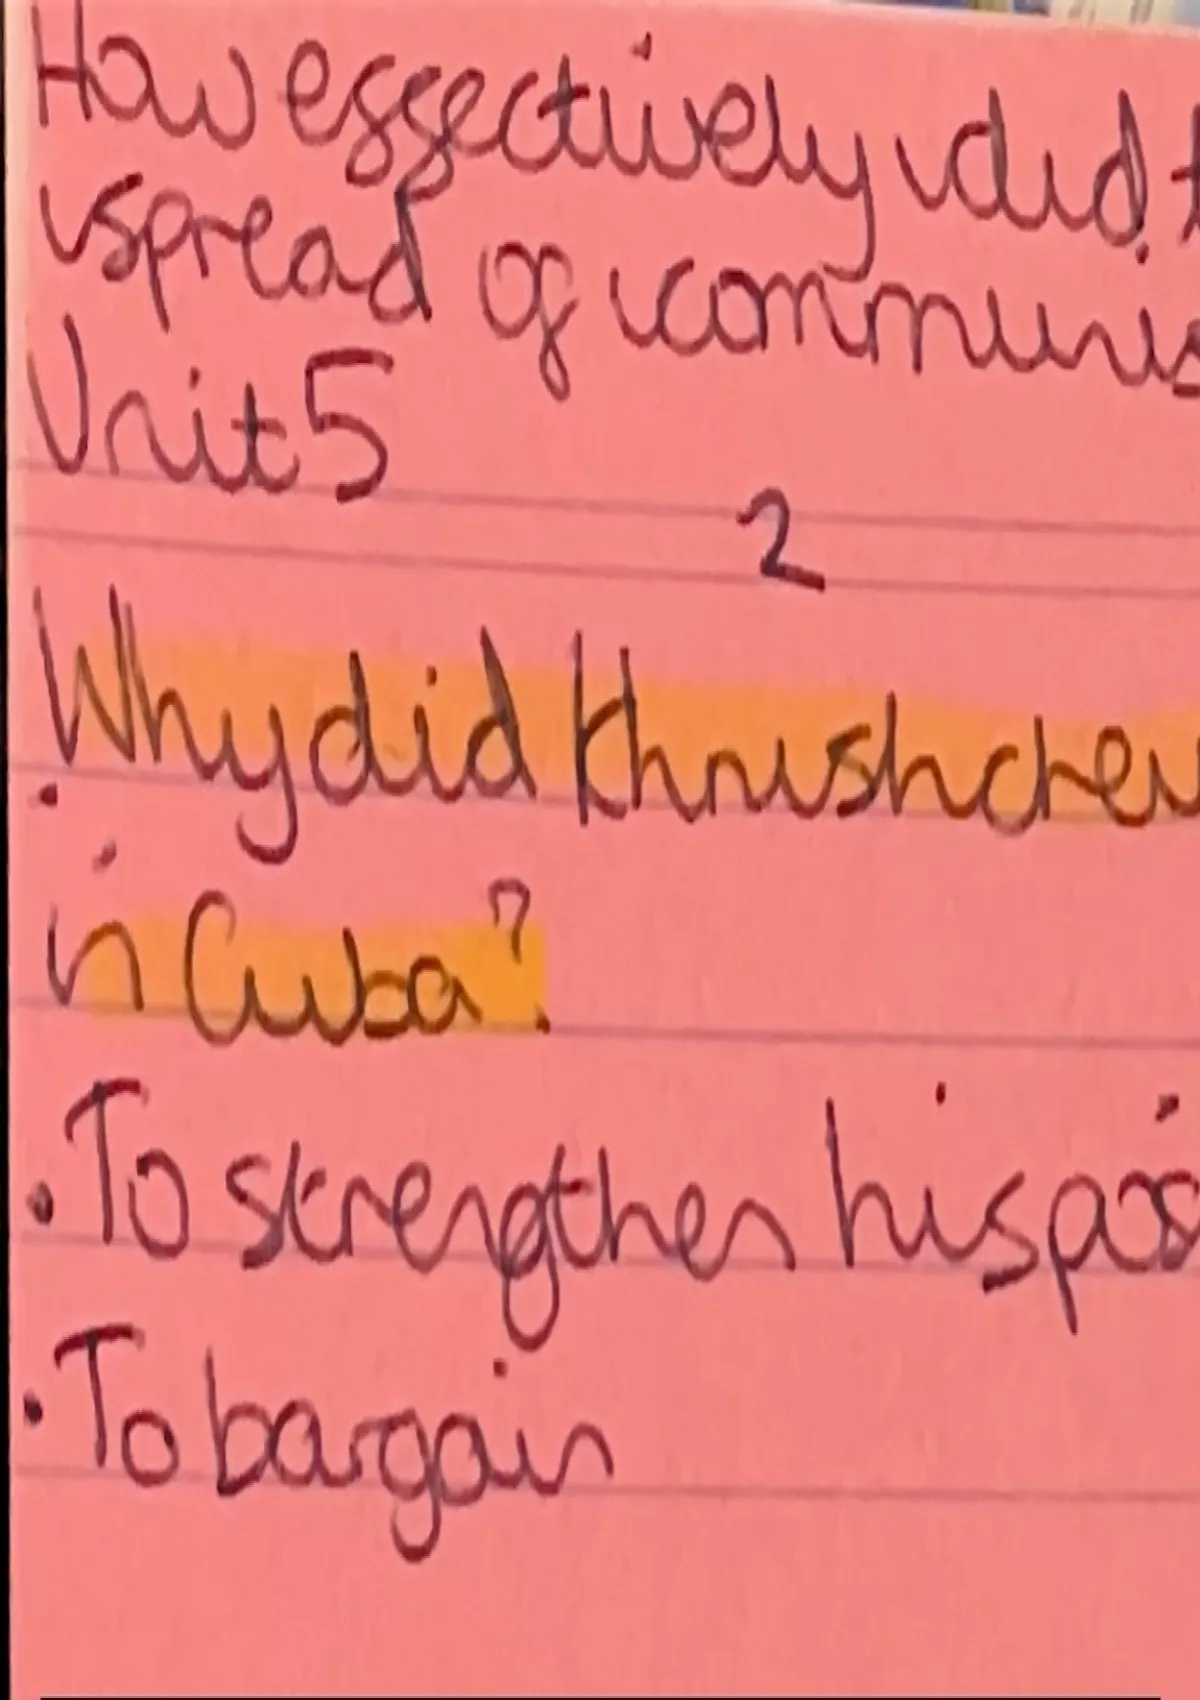 How effectively did
spread of communis
Unit 5
2
Why did Khrushchev
in Cuba?
· To strengthen his posi
· To bargain